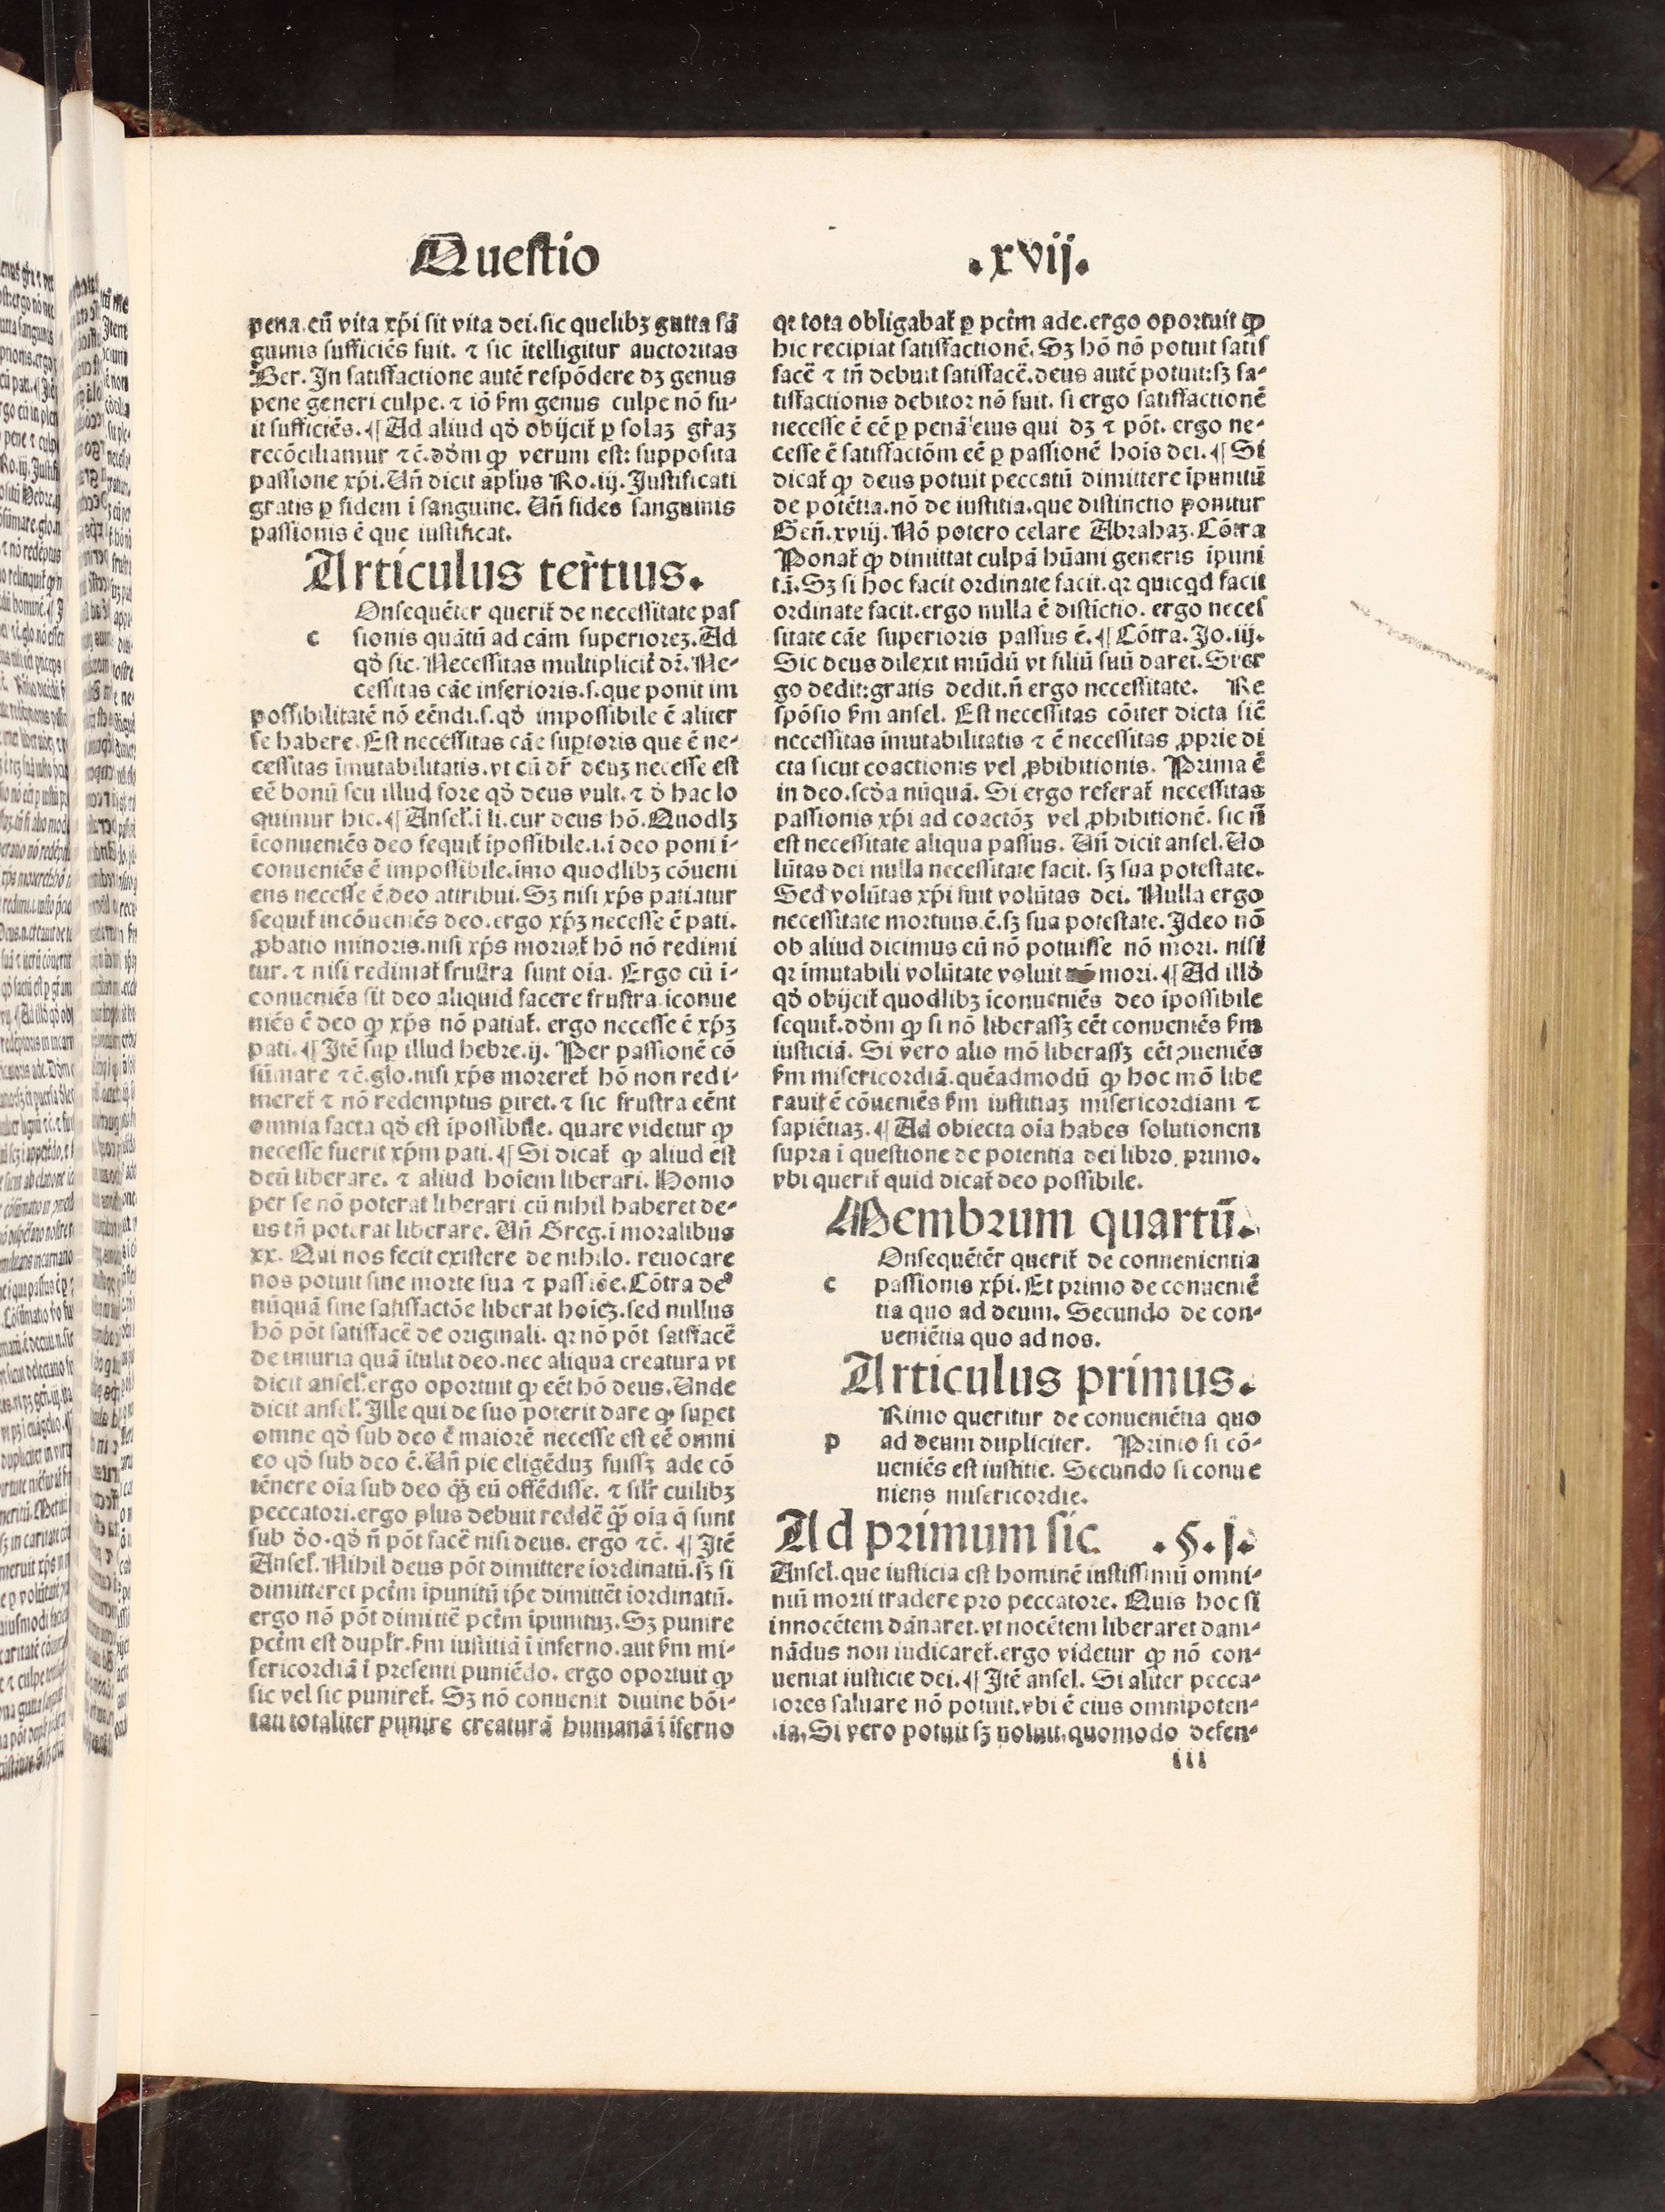 Questio .xvij.
pena. cū vita xp̄i sit vita dei. sic quelibꝫ gutta sā
guinis sufficiēs fuit. ⁊ sic itelligitur auctoritas
Ber. In satisfactione autē respōdere dꝫ genus
pene generi culpe. ⁊ iō ẜm genus culpe nō fu-
it sufficiēs. ¶ Ad aliud qd̓ obijcit᷑ ꝑ solaꝫ gr̄aꝫ
recōciliamur ⁊c̄. dōm ꝙ verum est: supposita
passione xp̄i. Uñ dicit apl̄us Ro. iij. Justificati
gratis ꝑ fidem i sanguine. Uñ fides sanguinis
passionis ē que iustificat.
Articulus tert̄ius.
Onsequēter querit᷑ de necessitate pas
c sionis quātū ad cām superioreꝫ. Ad
qd̓ sic. Necessitas multiplicit᷑ dr̄. Ne-
cessitas cāe inferioris. s. que ponit im
possibilitatē nō eēndi. s. qd̓ impossibile ē aliter
se habere. Est necessitas cāe suꝑioris que ē ne-
cessitas īmutabilitatis. vt cū dr̄ deuꝫ necesse est
eē bonū seu illud fore qd̓ deus vult. ⁊ d̓ hac lo
quimur hic. ¶ Ansel̓. i li. cur deus hō. Quodlꝫ
iconueniēs deo sequit᷑ ipossibile. i. i deo poni i-
conueniēs ē impossibile. imo quodlibꝫ cōueni
ens necesse ē deo attribui. Sꝫ nisi xp̄s patiatur
sequit᷑ incōueniēs deo. ergo xp̄ꝫ necesse ē pati.
ꝓbatio minoris. nisi xp̄s moriat᷑ hō nō redimi
tur. ⁊ nisi redimat᷑ frustra sunt oīa. Ergo cū i-
conueniēs sit deo aliquid facere frustra iconue
niēs ē deo ꝙ xp̄s nō patiat᷑. ergo necesse ē xp̄ꝫ
pati. ¶ Itē suꝑ illud hebre. ij. Per passionē cō
sūmare ⁊c̄. glo. nisi xp̄s moreret᷑ hō non redi-
meret᷑ ⁊ nō redemptus ꝑiret. ⁊ sic frustra eēnt
omnia facta qd̓ est ipossibile. quare videtur ꝙ
necesse fuerit xp̄m pati. ¶ Si dicat᷑ ꝙ aliud est
deū liberare. ⁊ aliud hoīem liberari. Homo
per se nō poterat liberari cū nihil haberet de-
us tñ poterat liberare. Uñ Greg. i moralibus
xx. Qui nos fecit existere de nihilo. reuocare
nos potuit sine morte sua ⁊ passiōe. Cōtra deꝰ
nūquā sine satisfactōe liberat hoīeꝫ. sed nullus
hō pōt satisfacē de originali. qꝛ nō pōt satisfacē
de iniuria quā itulit deo. nec aliqua creatura vt
dicit ansel̓. ergo oportuit ꝙ eēt hō deus. Unde
dicit ansel̓. Ille qui de suo poterit dare ꝙ suꝑet
omne qd̓ sub deo ē maiorē necesse est eē omni
eo qd̓ sub deo ē. Uñ pie eligēduꝫ fuissꝫ ade cō
tēnere oīa sub deo q̄ꝫ eū offēdisse. ⁊ silr̄ cuilibꝫ
peccatori. ergo plus debuit reddē ꝙ̄ oīa q̄ sunt
sub d̓o. qd̓ ñ pōt facē nisi deus. ergo ⁊c̄. ¶ Itē
Ansel̓. Nihil deus pōt dimittere iordinatū. sꝫ si
dimitteret pctm̄ ipunitū ip̄e dimittēt iordinatū.
ergo nō pōt dimittē pctm̄ ipunituꝫ. Sꝫ punire
pctm̄ est duplr̄. ẜm iustitiā i inferno. aut ẜm mi-
sericordiā i presenti puniēdo. ergo oportuit ꝙ
sic vel sic puniret᷑. Sꝫ nō conuenit diuine bōi-
tati totaliter punire creaturā humanā i iferno
qꝛ tota obligabat᷑ ꝑ pctm̄ ade. ergo oportuit ꝙ
hic recipiat satisfactionē. Sꝫ hō nō potuit satis
facē ⁊ tñ debuit satisfacē. deus autē potuit: sꝫ sa-
tisfactionis debitor nō fuit. si ergo satisfactionē
necesse ē eē ꝑ penā eius qui dꝫ ⁊ pōt. ergo ne-
cesse ē satisfactōm eē ꝑ passionē hoīs dei. ¶ Si
dicat᷑ ꝙ deus potuit peccatū dimittere ipunitū
de potētia. nō de iustitia. que distinctio ponitur
Geñ. xviij. Nō potero celare Abrahaꝫ. Cōtra
Ponat᷑ ꝙ dimittat culpā hūani generis ipuni
tā. Sꝫ si hoc facit ordinate facit. qꝛ quicqd facit
ordinate facit. ergo nulla ē distictio. ergo neces
sitate cāe superioris passus ē. ¶ Cōtra. Jo. iij.
Sic deus dilexit mūdū vt filiū suū daret. Si er
go dedit: gratis dedit. ñ ergo necessitate. Re
spōsio ẜm ansel. Est necessitas cōiter dicta sic̄
necessitas imutabilitatis ⁊ ē necessitas ꝓprie di
cta sicut coactionis vel ꝓhibitionis. Prima ē
in deo. scd̓a nūquā. Si ergo referat᷑ necessitas
passionis xp̄i ad coactōꝫ vel ꝓhibitionē. sic ñ
est necessitate aliqua passus. Uñ dicit ansel. Uo
lūtas dei nulla necessitate facit. sꝫ sua potestate.
Sed volūtas xp̄i fuit volūtas dei. Nulla ergo
necessitate mortuus ē. sꝫ sua potestate. Ideo nō
ob aliud dicimus eū nō potuisse nō mori. nisi
qꝛ imutabili volūtate voluit mori. ¶ Ad illd̓
qd̓ obijcit᷑ quodlibꝫ iconueniēs deo ipossibile
sequit᷑. dōm ꝙ si nō liberassꝫ eēt conueniēs ẜm
iusticiā. Si vero alio mō liberassꝫ eēt ꝯueniēs
ẜm misericordiā. quēadmodū ꝙ hoc mō libe
rauit ē cōueniēs ẜm iustitiaꝫ misericordiam ⁊
sapiētiaꝫ. ¶ Ad obiecta oīa habes solutionem
supra i questione de potentia dei libro primo.
vbi querit᷑ quid dicat᷑ deo possibile.
Membrum quartū.
Onsequētēr querit᷑ de conuenientia
c passionis xp̄i. Et primo de conueniē
tia quo ad deum. Secundo de con-
ueniētia quo ad nos.
Articulus primus.
Rimo queritur de conueniētia quo
p ad deum dupliciter. Primo si cō-
ueniēs est iustitie. Secundo si conue
niens misericordie.
Ad primum sic. .§. j.
Ansel. que iusticia est hominē iustissimū omni-
nū morti tradere pro peccatore. Quis hoc si
innocētem dānaret. vt nocētem liberaret dam-
nādus non iudicaret᷑. ergo videtur ꝙ nō con-
ueniat iusticie dei. ¶ Itē ansel. Si aliter pecca-
tores saluare nō potuit. vbi ē eius omnipoten-
tia. Si vero potuit sꝫ noluit. quomodo defen-
iii